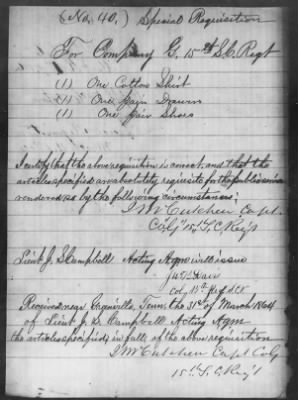 (No. 40.) Special Requisition
For Company G. 15th S.C. Regt
(1) One Cotton Shirt
(1) One Pair Drawers
(1) One Pair Shoes
I certify that the above requisition is correct, and that the
articles specified are absolutely requisite for the public service
rendered so by the following circumstances:
J McCutchen Capt.
Co G 15th S.C. Reg't
Lieut J. S Campbell Acting Aqm will issue
Col. 15th
Received near Greenville, Tenn, the 31st of March 1864
of Lieut J. S. Campbell Acting Aqm
the articles specified in full of the above requisition
J McCutchen Capt Co G
15th S.C. Reg't